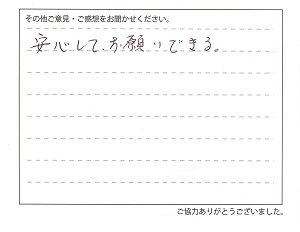 その他ご意見・ご感想をお聞かせください。
安心して、お願いできる。
ご協力ありがとうございました。